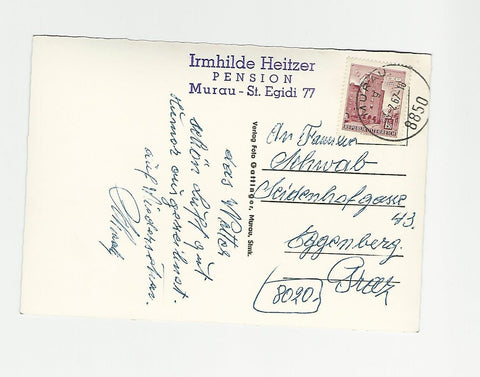 Irmhilde Heitzer
PENSION
Murau - St. Egidi 77
MURAU
67-18
8850
REPUBLIK ÖSTERREICH
Verlag Foto Gallinger, Murau, Stmk.
das Wetter
schön Luft gut
Humor ausgezeichnet.
auf Wiedersehen.
An Familie
Schwab
Seidenhofgasse
43.
Eggenberg.
Graz
8020